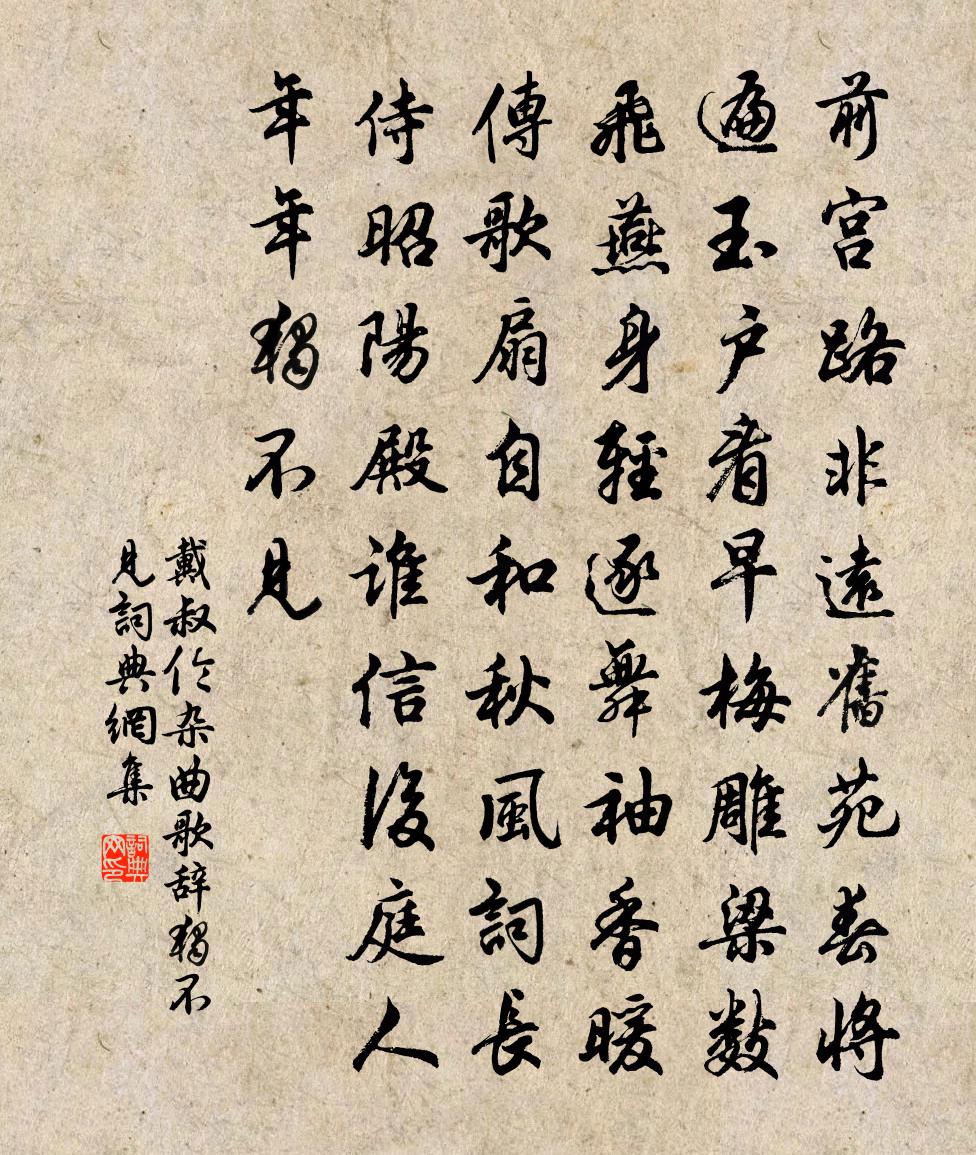 前宫路非遠舊苑春將
遍玉户看早梅雕梁数
飛燕身輕逐舞袖香暖
傳歌扇自和秋風詞長
侍昭陽殿誰信後庭人
年年獨不見
戴叔伦杂曲歌辞獨不
見詞典網集
詞典
网印